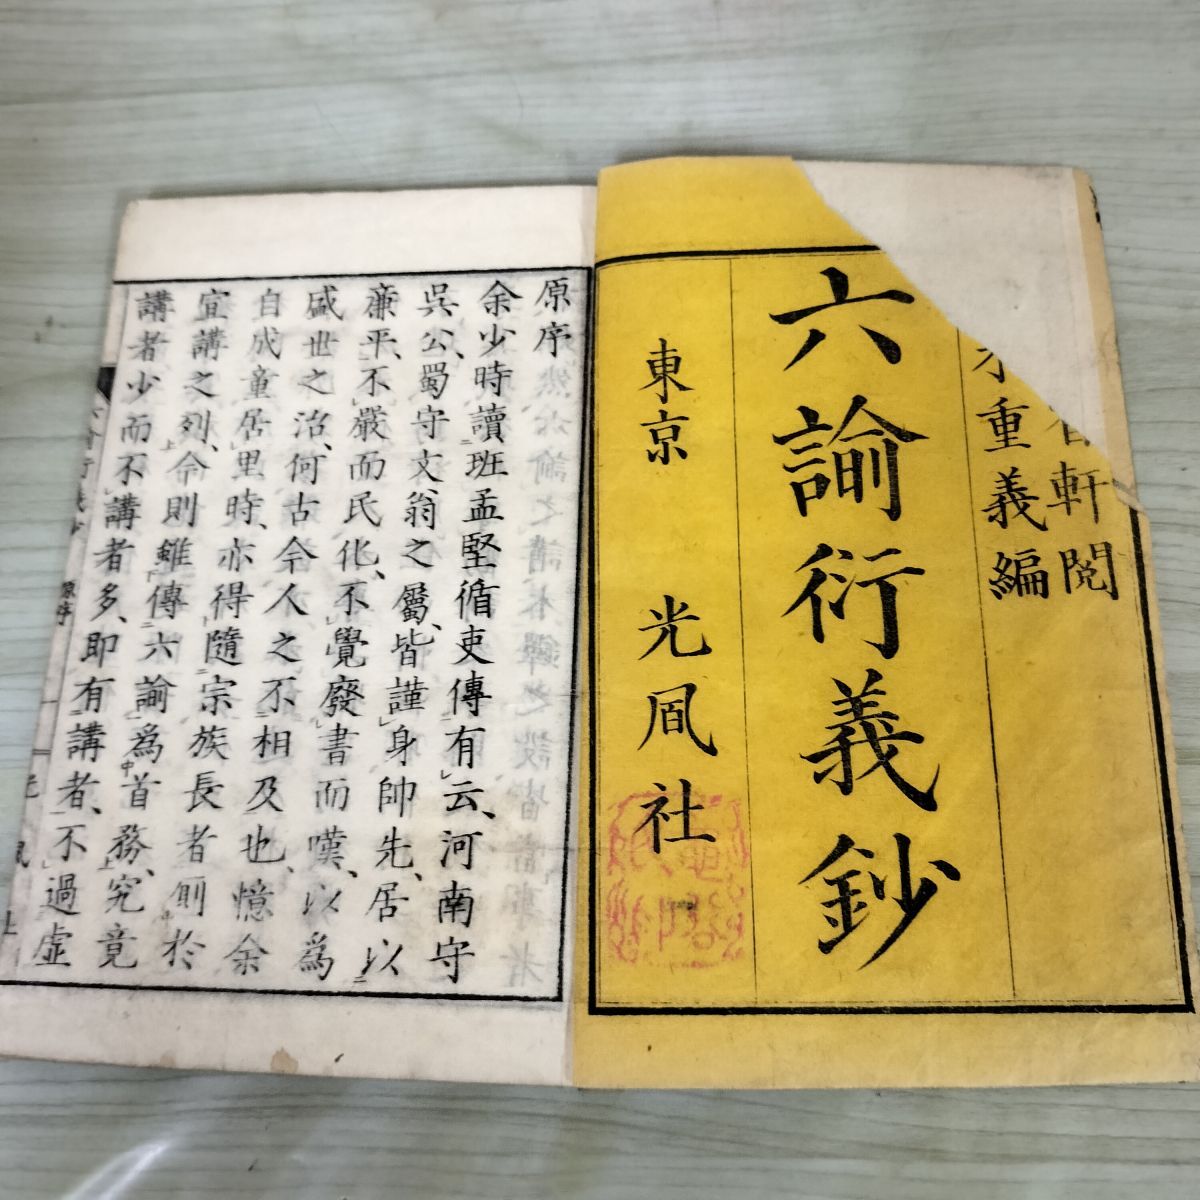 軒閲
重義編
六諭衍義鈔
東京 光風社
原序
余少時讀班孟堅循吏傳有云、河南守
呉公、蜀守文翁之屬、皆謹身帥先、居以
廉平、不嚴而民化、不覺廢書而嘆、以為
盛世之治、何古今人之不相及也、憶余
自成童居里時、亦得隨宗族長者側於
宣講之列、今則雖傳六諭為首務、究竟
講者少而不講者多、即有講者、不過虚
原序